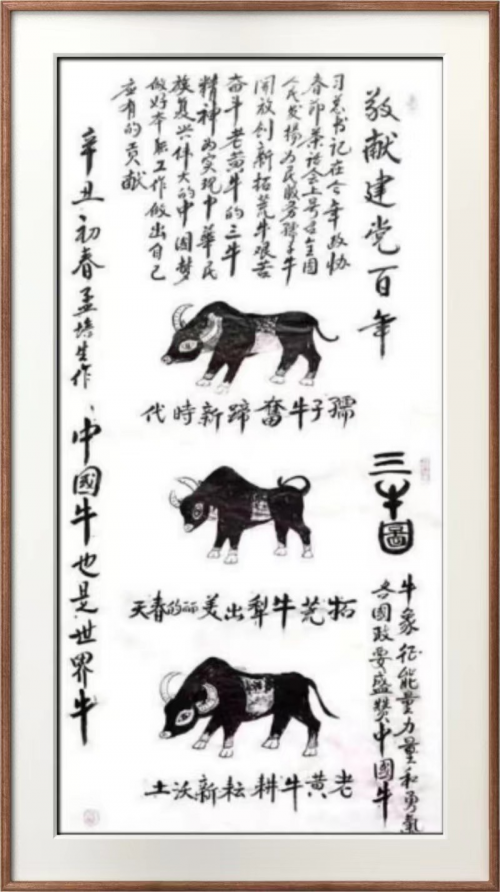 敬献建党百年
习总书记在今年政协
春节茶话会上号召全国
人民发揚为民服务孺子牛
開放创新拓荒牛艰苦
奋斗老黄牛的三牛
精神为实现中華民
族复兴伟大的中国梦
做好本职工作做出自己
应有的贡献
孺子牛奮蹄新時代
三牛圖
拓荒牛犁出美丽的春天
牛象征能量力量和勇氣
各國政要盛赞中國牛
老黄牛耕耘新沃土
辛丑初春孟培生作
中國牛也是世界牛